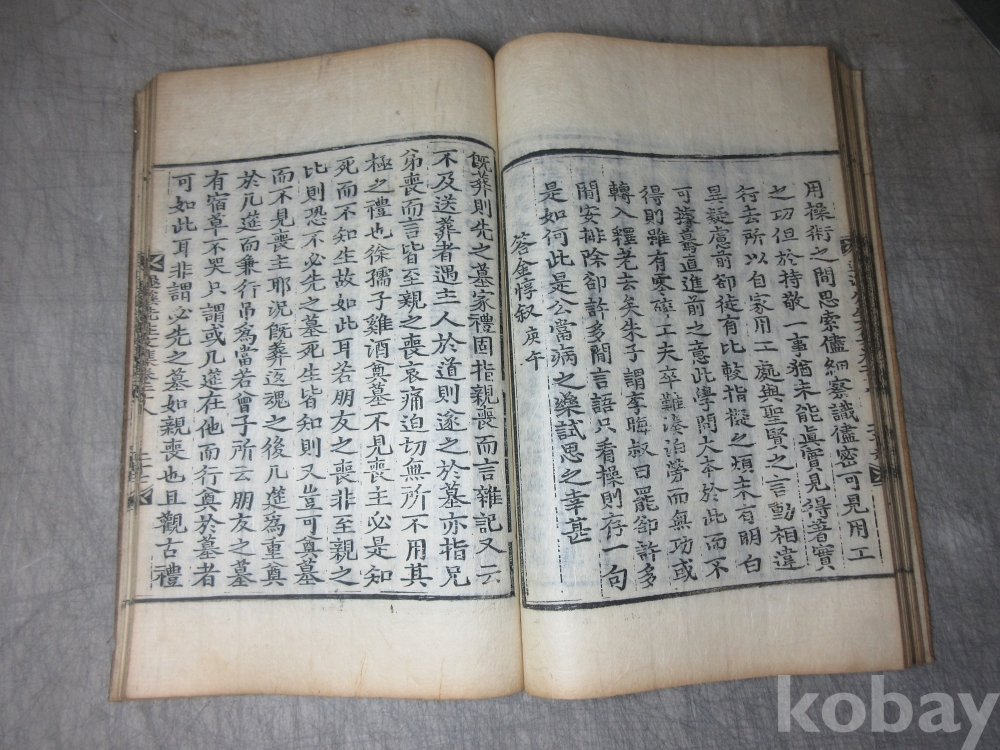 用操術之間思索儘細察識儘密可見用工
之功但於持敬一事猶未能眞實見得著實
行去所以自家用工處與聖賢之言動相違
異疑慮前卻徒有比較指擬之煩未有明白
可據驀直進前之意此學問大本於此而不
得則雖有寒碎工夫卒難湊泊勞而無功或
轉入釋老去矣朱子謂李晦叔曰罷卻許多
閒安排除卻許多閒言語只看操則存一句
是如何此是公當病之藥試思之幸甚
答金惇叙 庚午
旣葬則先之墓家禮固指親喪而言雜記又云
不及送葬者遇主人於道則遂之於墓亦指兄
弟喪而言皆至親之喪哀痛迫切無所不用其
極之禮也徐孺子雞酒奠墓不見喪主必是知
死而不知生故如此耳若朋友之喪非至親之
比則恐不必先之墓死生皆知則又豈可奠墓
而不見喪主耶況旣葬返魂之後几筵為重奠
於几筵而兼行吊為當若曾子所云朋友之墓
有宿草不哭只謂或几筵在他而行奠於墓者
可如此耳非謂必先之墓如親喪也且觀古禮
kobay